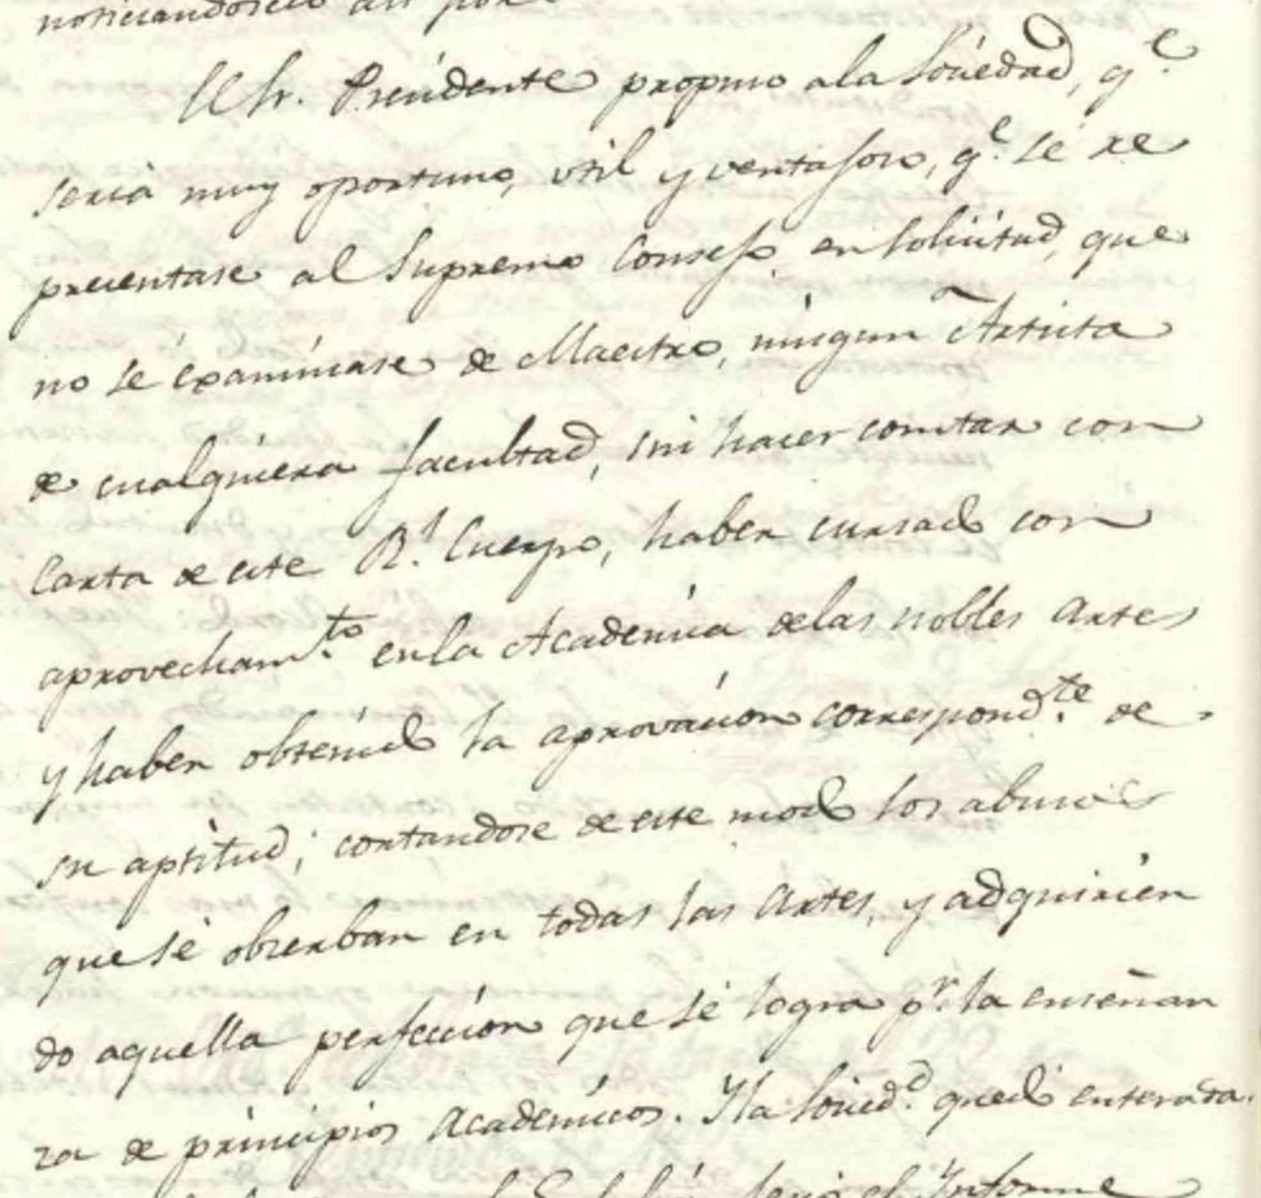 noticiandoselo asi por
El Sr. Presidente propuso a la Sociedad, q.e
seria muy oportuno, util y ventajoso, q.e se re
presentase al Supremo Consejo en solicitud, que
no se examinase de Maestro, ningun Artista
de cualquiera facultad, sin hacer constar con
Carta de este R.l Cuerpo, haber cursado con
aprovecham.to en la Academia de las nobles Artes
y haber obtenido la aprovacion correspond.te de
su aptitud; cortandose de este modo los abusos
que se obserban en todas las Artes, y adquirien
do aquella perfeccion que se logra p.r la enseñan
za de principios Academicos. Y la Socied.d quedó enterada.
leyó el Informe